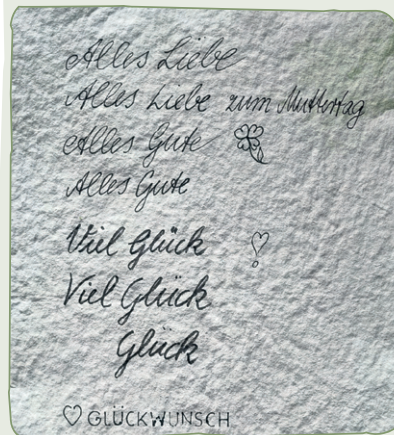 Alles Liebe
Alles Liebe zum Muttertag
Alles Gute
Alles Gute
Viel Glück
Viel Glück
Glück
GLÜCKWUNSCH